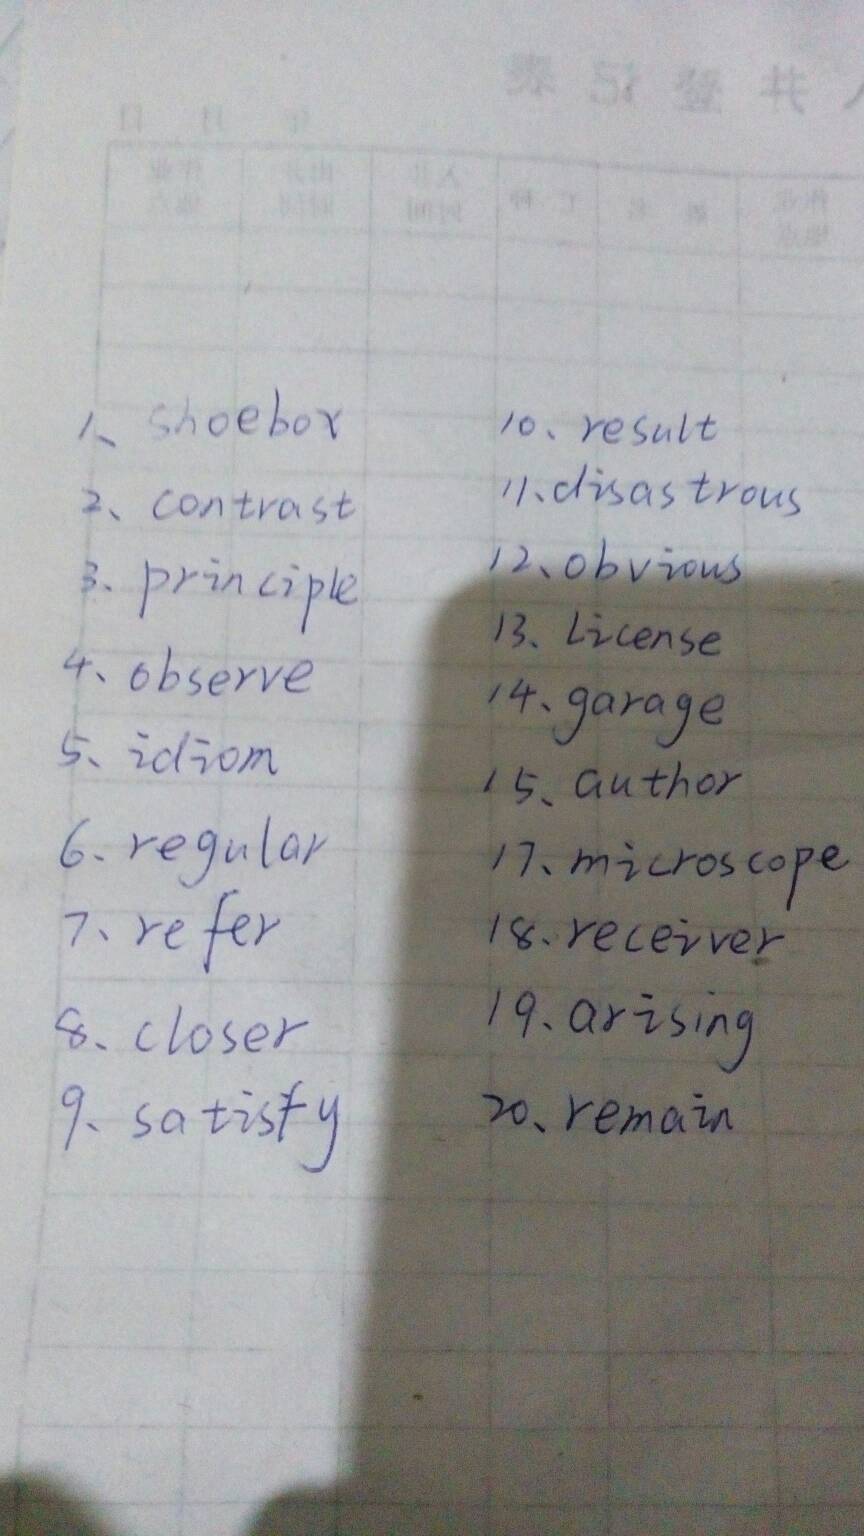 人井登记表
年 月 日
作业地点 出井时间 入井时间 工种 姓名 作业地点
1、shoebox
2、contrast
3、principle
4、observe
5、idiom
6、regular
7、refer
8、closer
9、satisfy
10、result
11、disastrous
12、obvious
13、License
14、garage
15、author
17、microscope
18、receiver
19、arising
20、remain